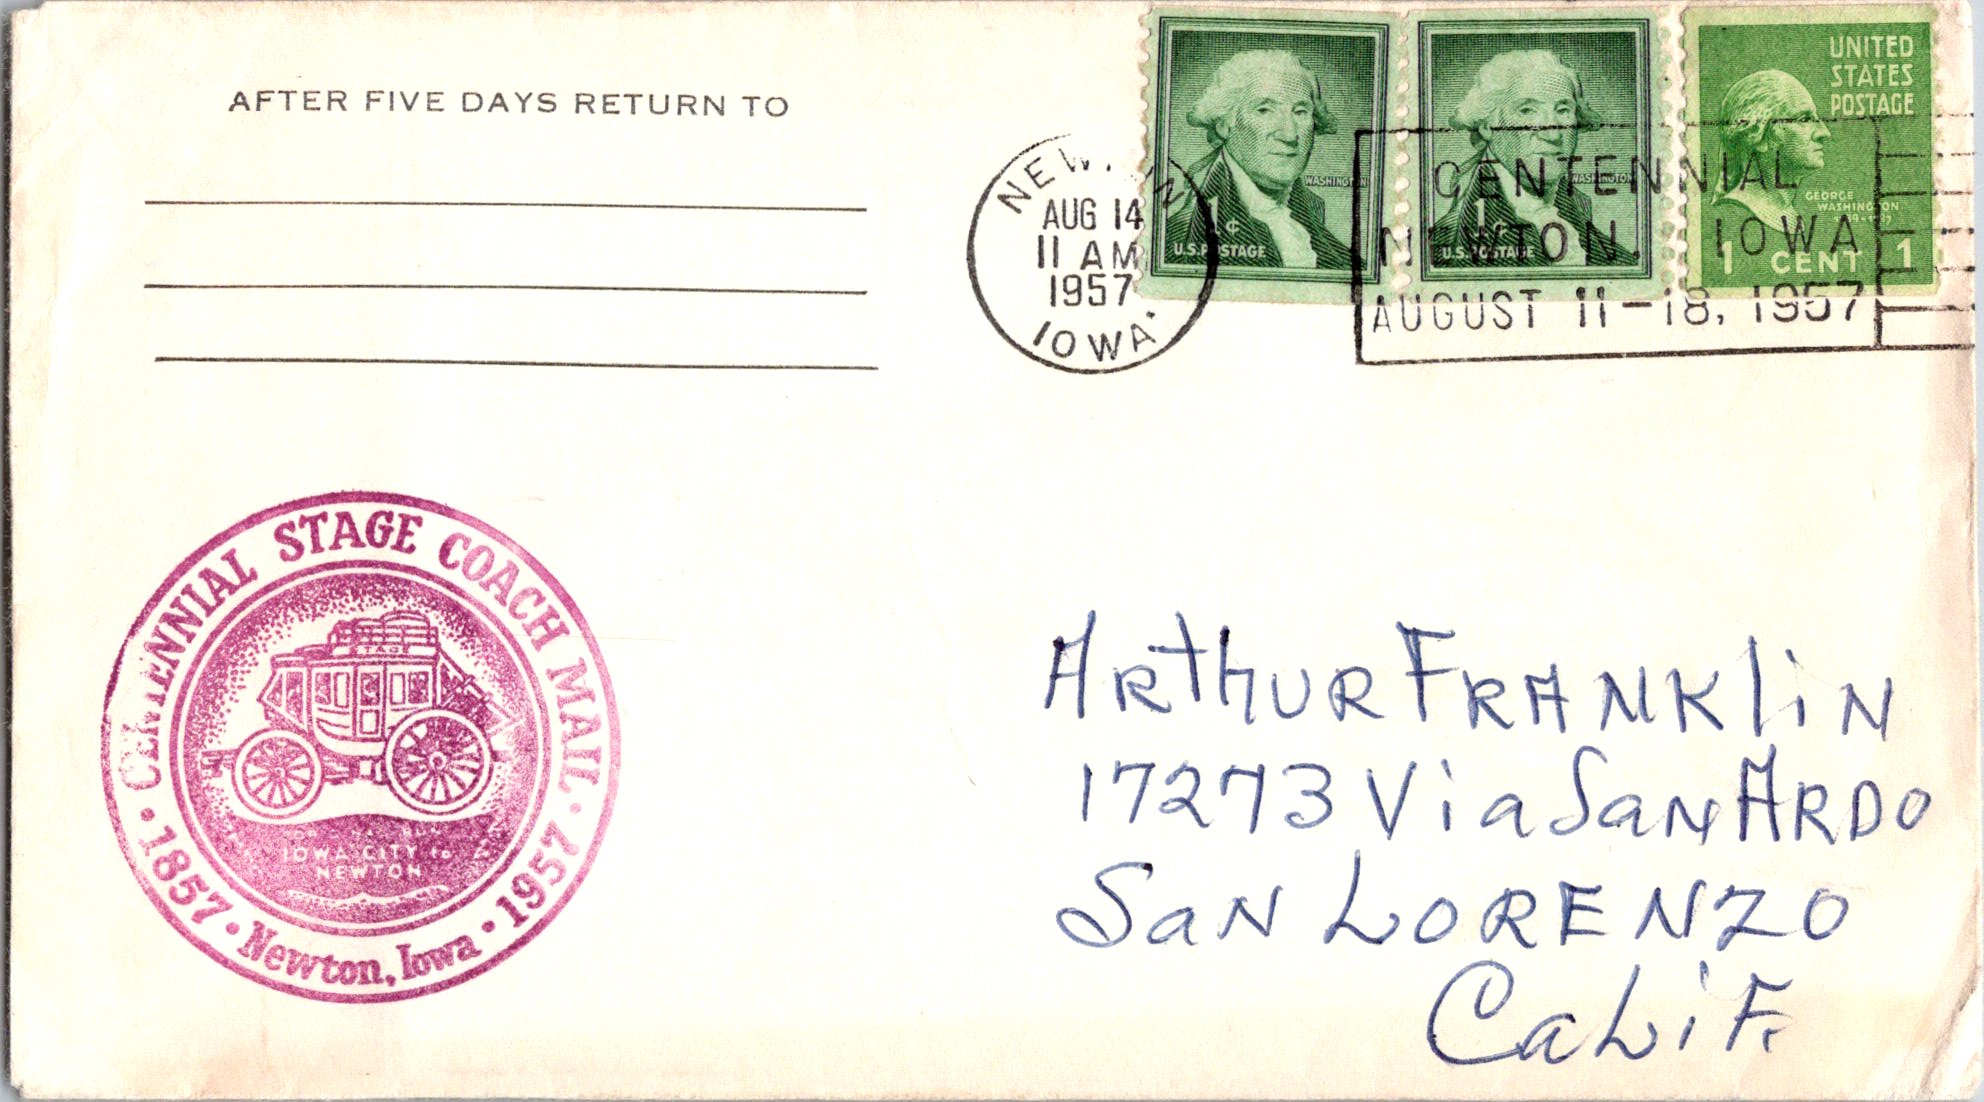 AFTER FIVE DAYS RETURN TO
NEWTON
AUG 14
11 AM
1957
IOWA.
WASHINGTON
1¢
U.S. POSTAGE
WASHINGTON
1¢
U.S. POSTAGE
UNITED
STATES
POSTAGE
GEORGE
WASHINGTON
1 CENT 1
CENTENNIAL
NEWTON. IOWA
AUGUST 11-18, 1957
CENTENNIAL STAGE COACH MAIL
STAGE
IOWA CITY to
NEWTON
• 1857 • Newton, Iowa • 1957 •
ArthUR FRANKliN
17273 Via San ARDO
SaN LORENZO
CaLiF.